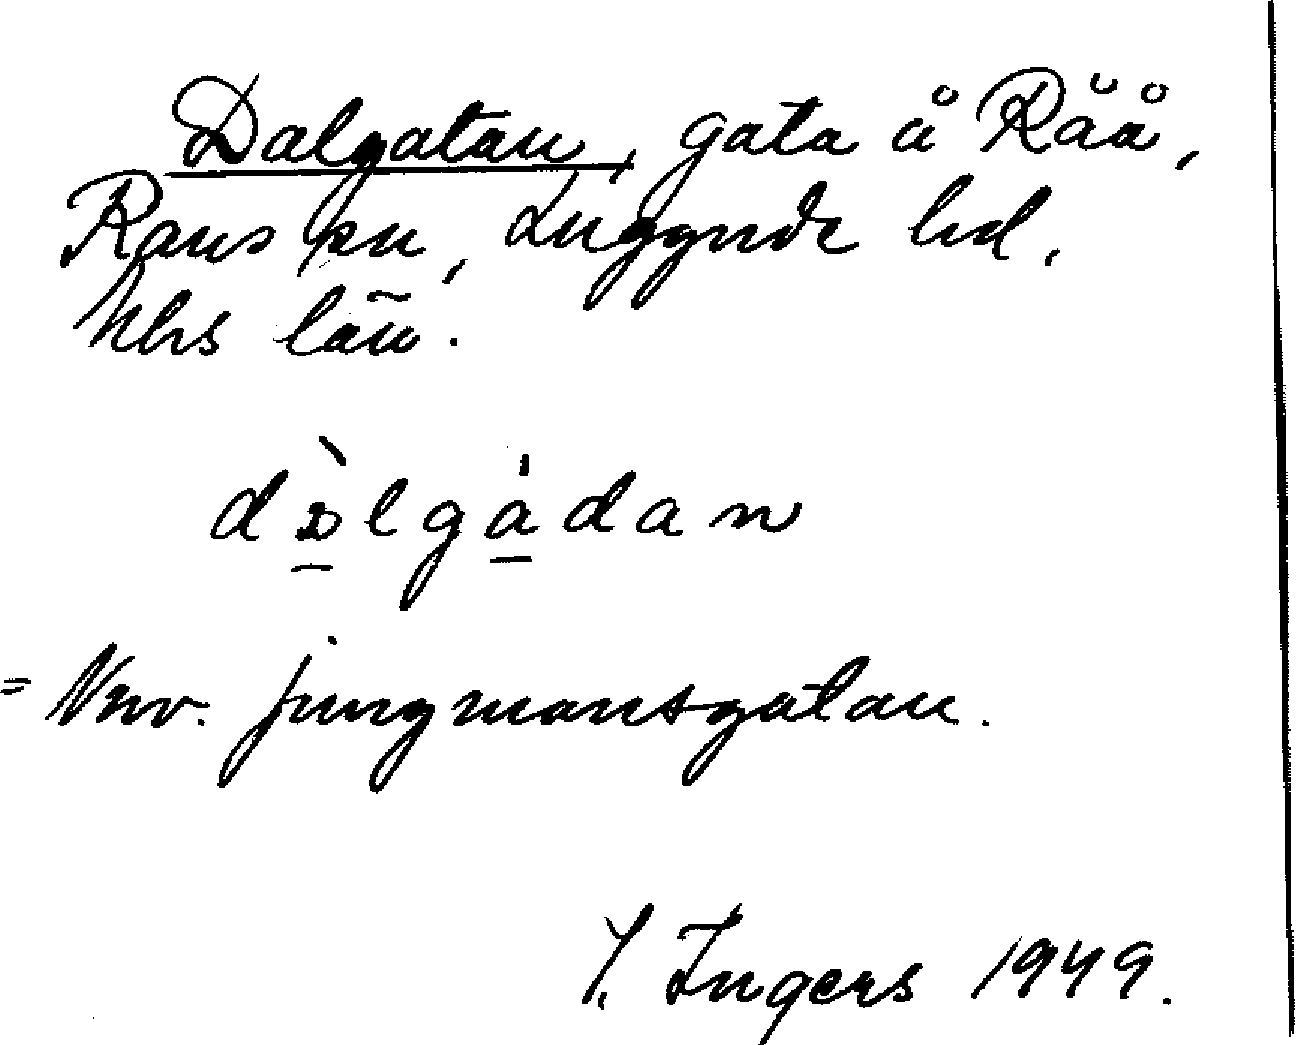 Dalgatan, gata å Råå,
Raus sn, Luggude hd,
Mhs län.
dɒ̀lgàdan
= Nuv. Jungmansgatan.
I. Ingers 1949.